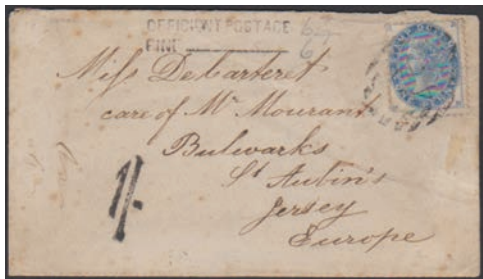 DEFICIENT POSTAGE 6
FINE 6
Miss DeCarteret
care of Mr Mourant
Bulwarks
St Aubin's
Jersey
Europe
1/-